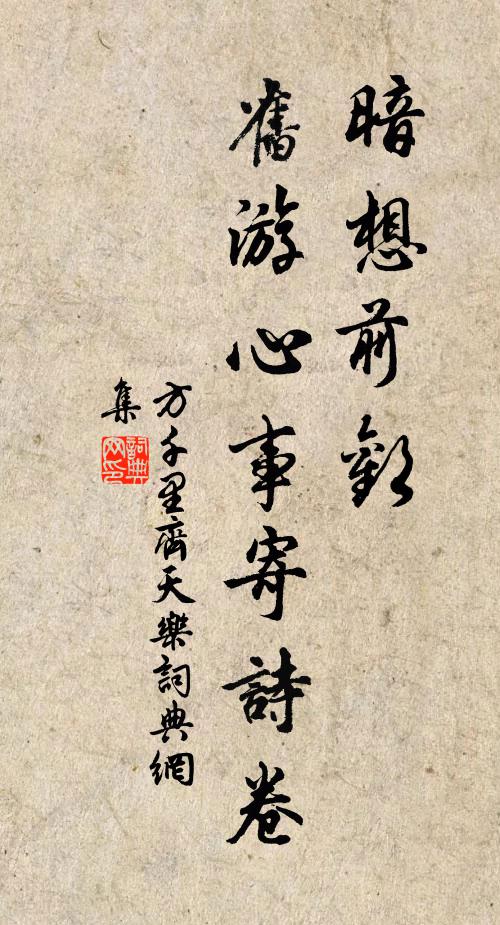 暗想前歡
舊游心事寄詩卷
方千里齊天樂詞典網
集
詞典
网印